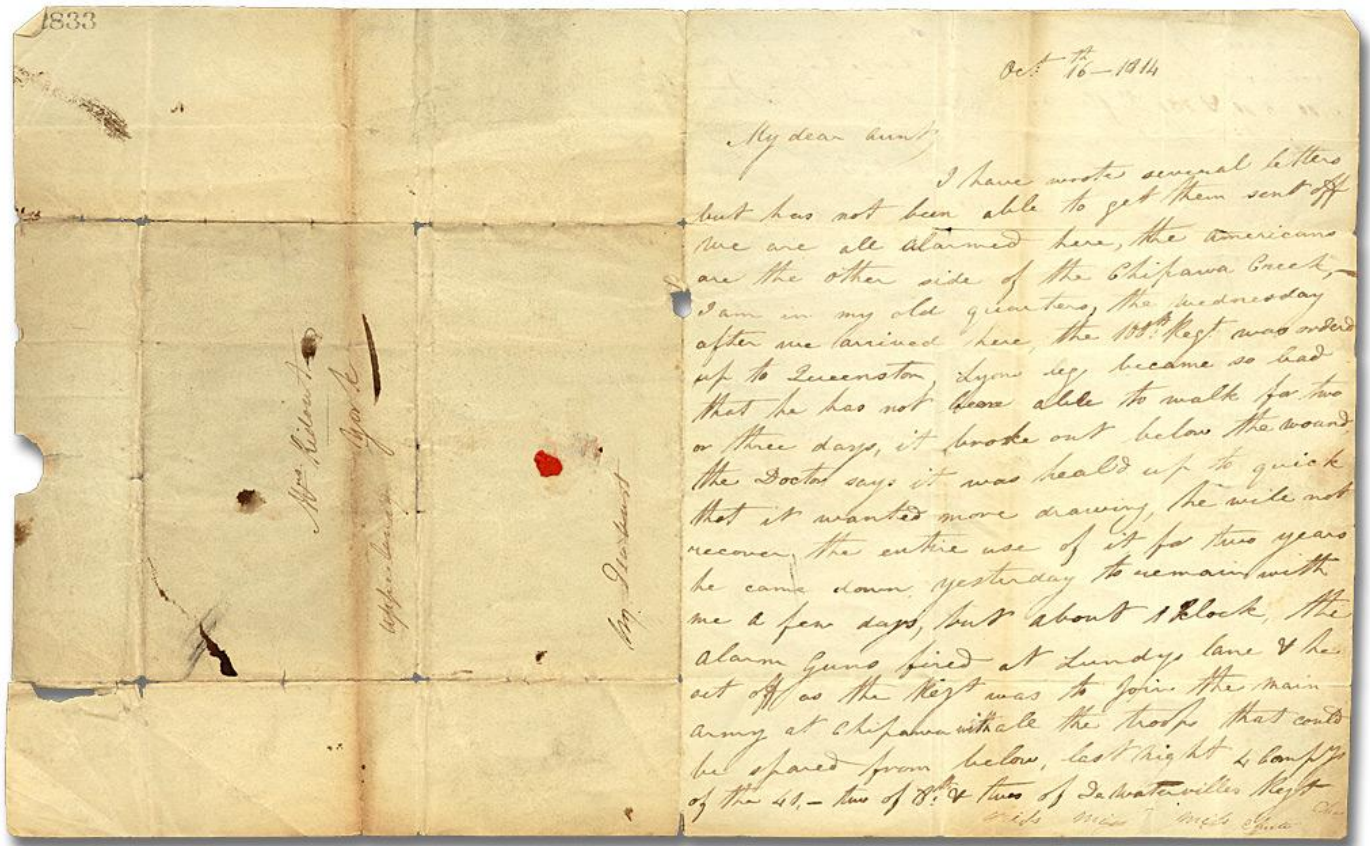 1833
Mrs Ridout
York
upper Canada
By
Oct 16th - 1814
My dear Aunt,
I have wrote several letters
but has not been able to get them sent off
we are all alarmed here, the Americans
are the other side of the Chipawa Creek, -
I am in my old quarters, the wednesday
after we arrived here, the Regt was orderd
up to Queenston, Lyons leg became so bad
that he has not been able to walk for two
or three days, it broke out below the wound,
the Doctor says it was heal'd up to quick
that it wanted more drawing, he will not
recover, the entire use of it for two years
he came down yesterday to remain with
me a few days, but about Klock, the
alarm Guns fired at Lundys lane & he
set off as the Regt was to join the main
army at Chipawa with all the troops that could
be spared from below, last night 4 Compys
of the 41, - two of & two of Dewatervilles Regt
miss miss